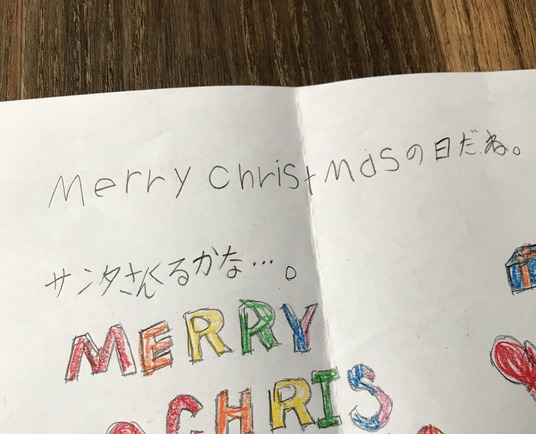 Merry Christmasの日だね。
サンタさんくるかな…。
MERRY
CHRIS